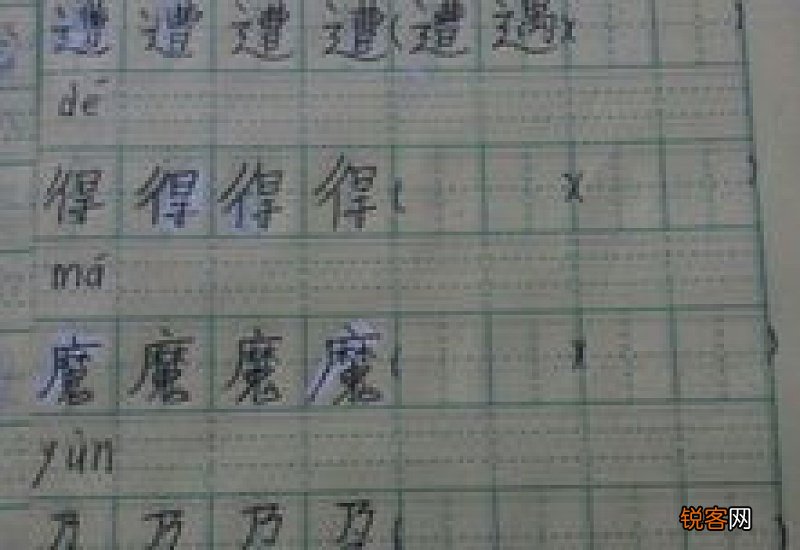 遭 遭 遭 遭 ( 遭 遇 )
dé
得 得 得 得 ( )( )
má
魔 魔 魔 魔 ( )( )
yùn
乃 乃 乃 乃 (
锐客网